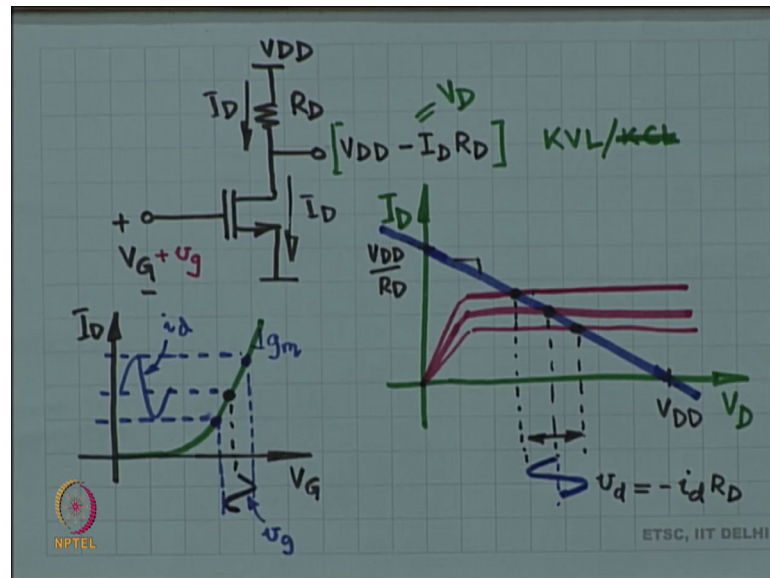 VDD
I_D
R_D
V_D
[VDD - I_D R_D]
KVL/KCL
I_D
+
V_G + v_g
-
I_D
VDD/R_D
I_D
i_d
g_m
V_G
v_g
VDD
V_D
v_d = -i_d R_D
NPTEL
ETSC, IIT DELHI